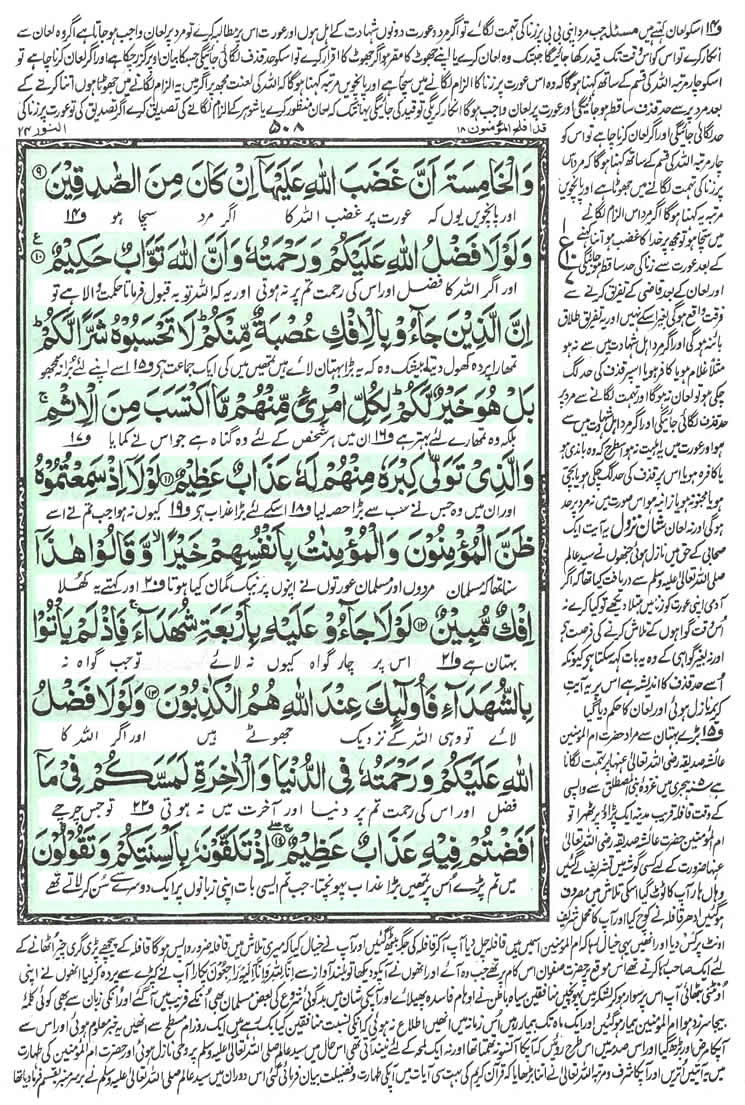 و۱۴ اسکو لعان کہتے ہیں مسئلہ جب مرد اپنی بی بی پر زنا کی تہمت لگائے تو اگر مرد و عورت دونوں شہادت کے اہل ہوں اور عورت اس پر مطالبہ کرے تو مرد پر لعان واجب ہو جاتا ہے اگر وہ لعان سے
انکار کرے تو اس کو اس وقت تک قید رکھا جائیگا جب تک وہ لعان کرے یا اپنے جھوٹ کا مقر ہو اگر جھوٹ کا اقرار کرے تو اسکو حد قذف لگائی جائیگی جسکا بیان اوپر گزر چکا ہے اور اگر لعان کرنا چاہے تو
اسکو چار مرتبہ اللہ کی قسم کے ساتھ کہنا ہوگا کہ وہ اس عورت پر زنا کا الزام لگانے میں سچا ہے اور پانچویں مرتبہ کہنا ہوگا کہ اللہ کی لعنت مجھ پر اگر میں یہ الزام لگانے میں جھوٹا ہوں اتنا کرنے کے
بعد مرد پر سے حد قذف ساقط ہو جائیگی اور عورت پر لعان واجب ہوگا انکار کریگی تو قید کی جائیگی یہاں تک کہ لعان منظور کرے یا شوہر کے الزام لگانے کی تصدیق کرے اگر تصدیق کی تو عورت پر زنا کی
قد افلح المؤمنون ۱۸
۵۰۸
النور ۲۴
وَالْخَامِسَةَ اَنَّ غَضَبَ اللّٰهِ عَلَيْهَاۤ اِنْ كَانَ مِنَ الصّٰدِقِيْنَ ۹
اور پانچویں یوں کہ عورت پر غضب اللہ کا اگر مرد سچا ہو و۱۴
وَلَوْلَا فَضْلُ اللّٰهِ عَلَيْكُمْ وَرَحْمَتُهٗ وَاَنَّ اللّٰهَ تَوَّابٌ حَكِيْمٌ ۱۰
اور اگر اللہ کا فضل اور اس کی رحمت تم پر نہ ہوتی اور یہ کہ اللہ توبہ قبول فرماتا حکمت والا ہے تو
اِنَّ الَّذِيْنَ جَآءُوْ بِالْاِفْكِ عُصْبَةٌ مِّنْكُمْ ؕ لَا تَحْسَبُوْهُ شَرًّا لَّكُمْ ؕ
تمھارا پردہ کھول دیتا بیشک وہ کہ یہ بڑا بہتان لائے ہیں تمھیں میں کی ایک جماعت ہے و۱۵ اسے اپنے لئے بُرا نہ سمجھو
بَلْ هُوَ خَيْرٌ لَّكُمْ ؕ لِكُلِّ امْرِئٍ مِّنْهُمْ مَّا اكْتَسَبَ مِنَ الْاِثْمِ ۚ
بلکہ وہ تمھارے لئے بہتر ہے و۱۶ ان میں ہر شخص کے لئے وہ گناہ ہے جو اس نے کمایا و۱۷
وَالَّذِيْ تَوَلّٰى كِبْرَهٗ مِنْهُمْ لَهٗ عَذَابٌ عَظِيْمٌ ۱۱ لَوْلَاۤ اِذْ سَمِعْتُمُوْهُ
اور ان میں وہ جس نے سب سے بڑا حصہ لیا و۱۸ اسکے لئے بڑا عذاب ہے و۱۹ کیوں نہ ہوا جب تم نے اسے
ظَنَّ الْمُؤْمِنُوْنَ وَالْمُؤْمِنٰتُ بِاَنْفُسِهِمْ خَيْرًا ۙ وَّقَالُوْا هٰذَاۤ
سنا تھا کہ مسلمان مردوں اور مسلمان عورتوں نے اپنوں پر نیک گمان کیا ہوتا و۲۰ اور کہتے یہ کھلا
اِفْكٌ مُّبِيْنٌ ۱۲ لَوْلَا جَآءُوْ عَلَيْهِ بِاَرْبَعَةِ شُهَدَآءَ ۚ فَاِذْ لَمْ يَاْتُوْا
بہتان ہے و۲۱ اس پر چار گواہ کیوں نہ لائے تو جب گواہ نہ
بِالشُّهَدَآءِ فَاُولٰٓئِكَ عِنْدَ اللّٰهِ هُمُ الْكٰذِبُوْنَ ۱۳ وَلَوْلَا فَضْلُ
لائے تو وہی اللہ کے نزدیک جھوٹے ہیں اور اگر اللہ کا
اللّٰهِ عَلَيْكُمْ وَرَحْمَتُهٗ فِى الدُّنْيَا وَالْاٰخِرَةِ لَمَسَّكُمْ فِيْ مَاۤ
فضل اور اس کی رحمت تم پر دنیا اور آخرت میں نہ ہوتی و۲۲ تو جس چرچے
اَفَضْتُمْ فِيْهِ عَذَابٌ عَظِيْمٌ ۱۴ اِذْ تَلَقَّوْنَهٗ بِاَلْسِنَتِكُمْ وَتَقُوْلُوْنَ
میں تم پڑے اس پر تمھیں بڑا عذاب پہونچتا جب تم ایسی بات اپنی زبانوں پر ایک دوسرے سے سُن کر لاتے تھے
حد لگائی جائیگی اور اگر لعان کرنا چاہے تو اس کو
چار مرتبہ اللہ کی قسم کے ساتھ کہنا ہوگا کہ مرد اس
پر زنا کی تہمت لگانے میں جھوٹا ہے اور پانچویں
مرتبہ یہ کہنا ہوگا اگر مرد اس الزام لگانے
میں سچا ہو تو مجھ پر خدا کا غضب ہو اتنا کہنے
کے بعد عورت سے زنا کی حد ساقط ہو جائیگی
اور لعان کے بعد قاضی کے تفریق کرنے سے
فرقت واقع ہوگی بغیر اسکے نہیں اور یہ تفریق طلاق
بائنہ ہوگی اور اگر مرد اہل شہادت میں سے نہ ہو
مثلاً غلام ہو یا کافر ہو یا اسپر قذف کی حد لگ
چکی ہو تو لعان نہ ہوگا اور تہمت لگانے سے مرد پر
حد قذف لگائی جائیگی اور اگر مرد اہل شہادت میں سے
ہو اور عورت میں یہ اہلیت نہ ہو اسطرح کہ وہ باندی ہو
یا کافرہ ہو یا اس پر قذف کی حد لگ چکی ہو یا بچی
ہو یا مجنونہ ہو یا زانیہ ہو اس صورت میں نہ مرد پر حد
ہوگی اور نہ لعان شان نزول یہ آیت ایک
صحابی کے حق میں نازل ہوئی جنھوں نے سید عالم
صلی اللہ تعالیٰ علیہ وسلم سے دریافت کیا تھا کہ اگر
آدمی اپنی عورت کو زنا میں مبتلا دیکھے تو کیا کرے نہ
اُس وقت گواہوں کے تلاش کرنے کی فرصت ہے
اور نہ بغیر گواہی کے وہ یہ بات کہہ سکتا ہے کیونکہ
اُسے حد قذف کا اندیشہ ہے اس پر یہ آیت
کریمہ نازل ہوئی اور لعان کا حکم دیا گیا
و۱۵ بڑے بہتان سے مراد حضرت ام المؤمنین
عائشہ صدیقہ رضی اللہ تعالیٰ عنہا پر تہمت لگانا
ہے ۵ ہجری میں غزوہ بنی المصطلق سے واپسی
کے وقت قافلہ قریب مدینہ ایک پڑاؤ پر ٹھہرا تو
ام المؤمنین حضرت عائشہ صدیقہ رضی اللہ تعالیٰ
عنہا ضرورت کے لیے کسی گوشہ میں تشریف لے گئیں
وہاں ہار آپ کا ٹوٹ گیا اسکی تلاش میں مصروف
ہو گئیں ادھر قافلہ نے کوچ کیا اور آپ کا محمل شریف
اونٹ پر کس دیا اور انھیں یہی خیال رہا کہ ام المؤمنین اسمیں ہیں قافلہ چل دیا آپ آ کر قافلہ کی جگہ بیٹھ گئیں اور آپ نے خیال کیا کہ میری تلاش میں قافلہ ضرور واپس ہوگا قافلہ کے پیچھے پڑی گری چیز اٹھانے کے
لئے ایک صاحب رہا کرتے تھے اس موقع پر حضرت صفوان اس کام پر تھے جب وہ آئے اور انھوں نے آپکو دیکھا تو بلند آواز سے اِنَّا لِلّٰهِ وَاِنَّاۤ اِلَيْهِ رَاجِعُوْنَ پکارا آپ نے کپڑے سے پردہ کر لیا انھوں نے اپنی
اونٹنی بٹھائی آپ اس پر سوار ہو کر لشکر میں پہونچیں منافقین سیاہ باطن نے اوہام فاسدہ پھیلائے اور آپکی شان میں بدگوئی شروع کی بعض مسلمان بھی اُنکے فریب میں آ گئے اور اُنکی زبان سے بھی کوئی کلمۂ
بیجا سرزد ہوا ام المؤمنین بیمار ہو گئیں اور ایک ماہ تک بیمار رہیں اُس زمانہ میں انھیں اطلاع نہ ہوئی کہ انکی نسبت منافقین کیا بک رہے ہیں ایک روز ام مسطح سے انھیں یہ خبر معلوم ہوئی اور اس سے
آپکا مرض اور بڑھ گیا اور اس صدمہ میں اس طرح روئیں کہ آپکا آنسو نہ تھمتا تھا اور نہ ایک لمحہ کے لئے نیند آتی تھی اس حال میں سید عالم صلی اللہ تعالیٰ علیہ وسلم پر وحی نازل ہوئی اور حضرت ام المؤمنین کی طہارت
میں یہ آیتیں اُتریں اور آپکا شرف و مرتبہ اللہ تعالیٰ نے اتنا بڑھایا کہ قرآن کریم کی بہت سی آیات میں آپکی طہارت و فضیلت بیان فرمائی گئی اس دوران میں سید عالم صلی اللہ تعالیٰ علیہ وسلم نے برسر منبر بقسم فرما دیا تھا